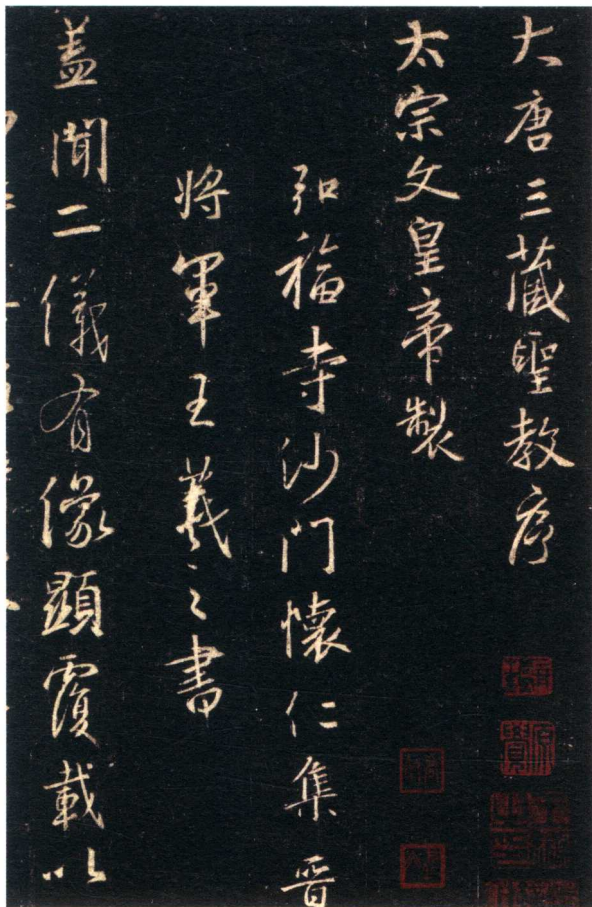 大唐三藏聖教序
太宗文皇帝製
弘福寺沙門懷仁集晉
將軍王羲之書
蓋聞二儀有像顯覆載以